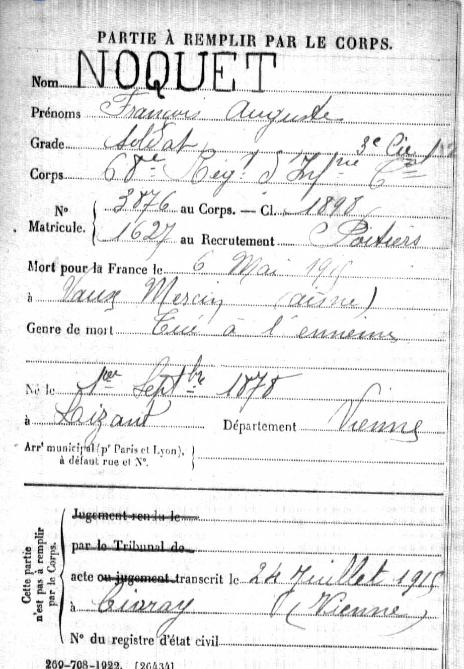 PARTIE À REMPLIR PAR LE CORPS.
Nom NOQUET
Prénoms François Auguste
Grade Soldat
3e Cie
Corps 68me Régt d'Infrie
N° Matricule. 3876 au Corps. — Cl. 1898
1627 au Recrutement Poitiers
Mort pour la France le 6 Mai 1915
à Vaux Mercin (aisne)
Genre de mort Tué à l'ennemi
Né le 1er Septbre 1878
à Lizant Département Vienne
Arrt municipal (pr Paris et Lyon),
à défaut rue et N°.
Cette partie n'est pas à remplir par le Corps.
Jugement rendu le
par le Tribunal de
acte ou jugement transcrit le 24 Juillet 1915
à Civray (Vienne)
N° du registre d'état civil
269-708-1922. [26434]